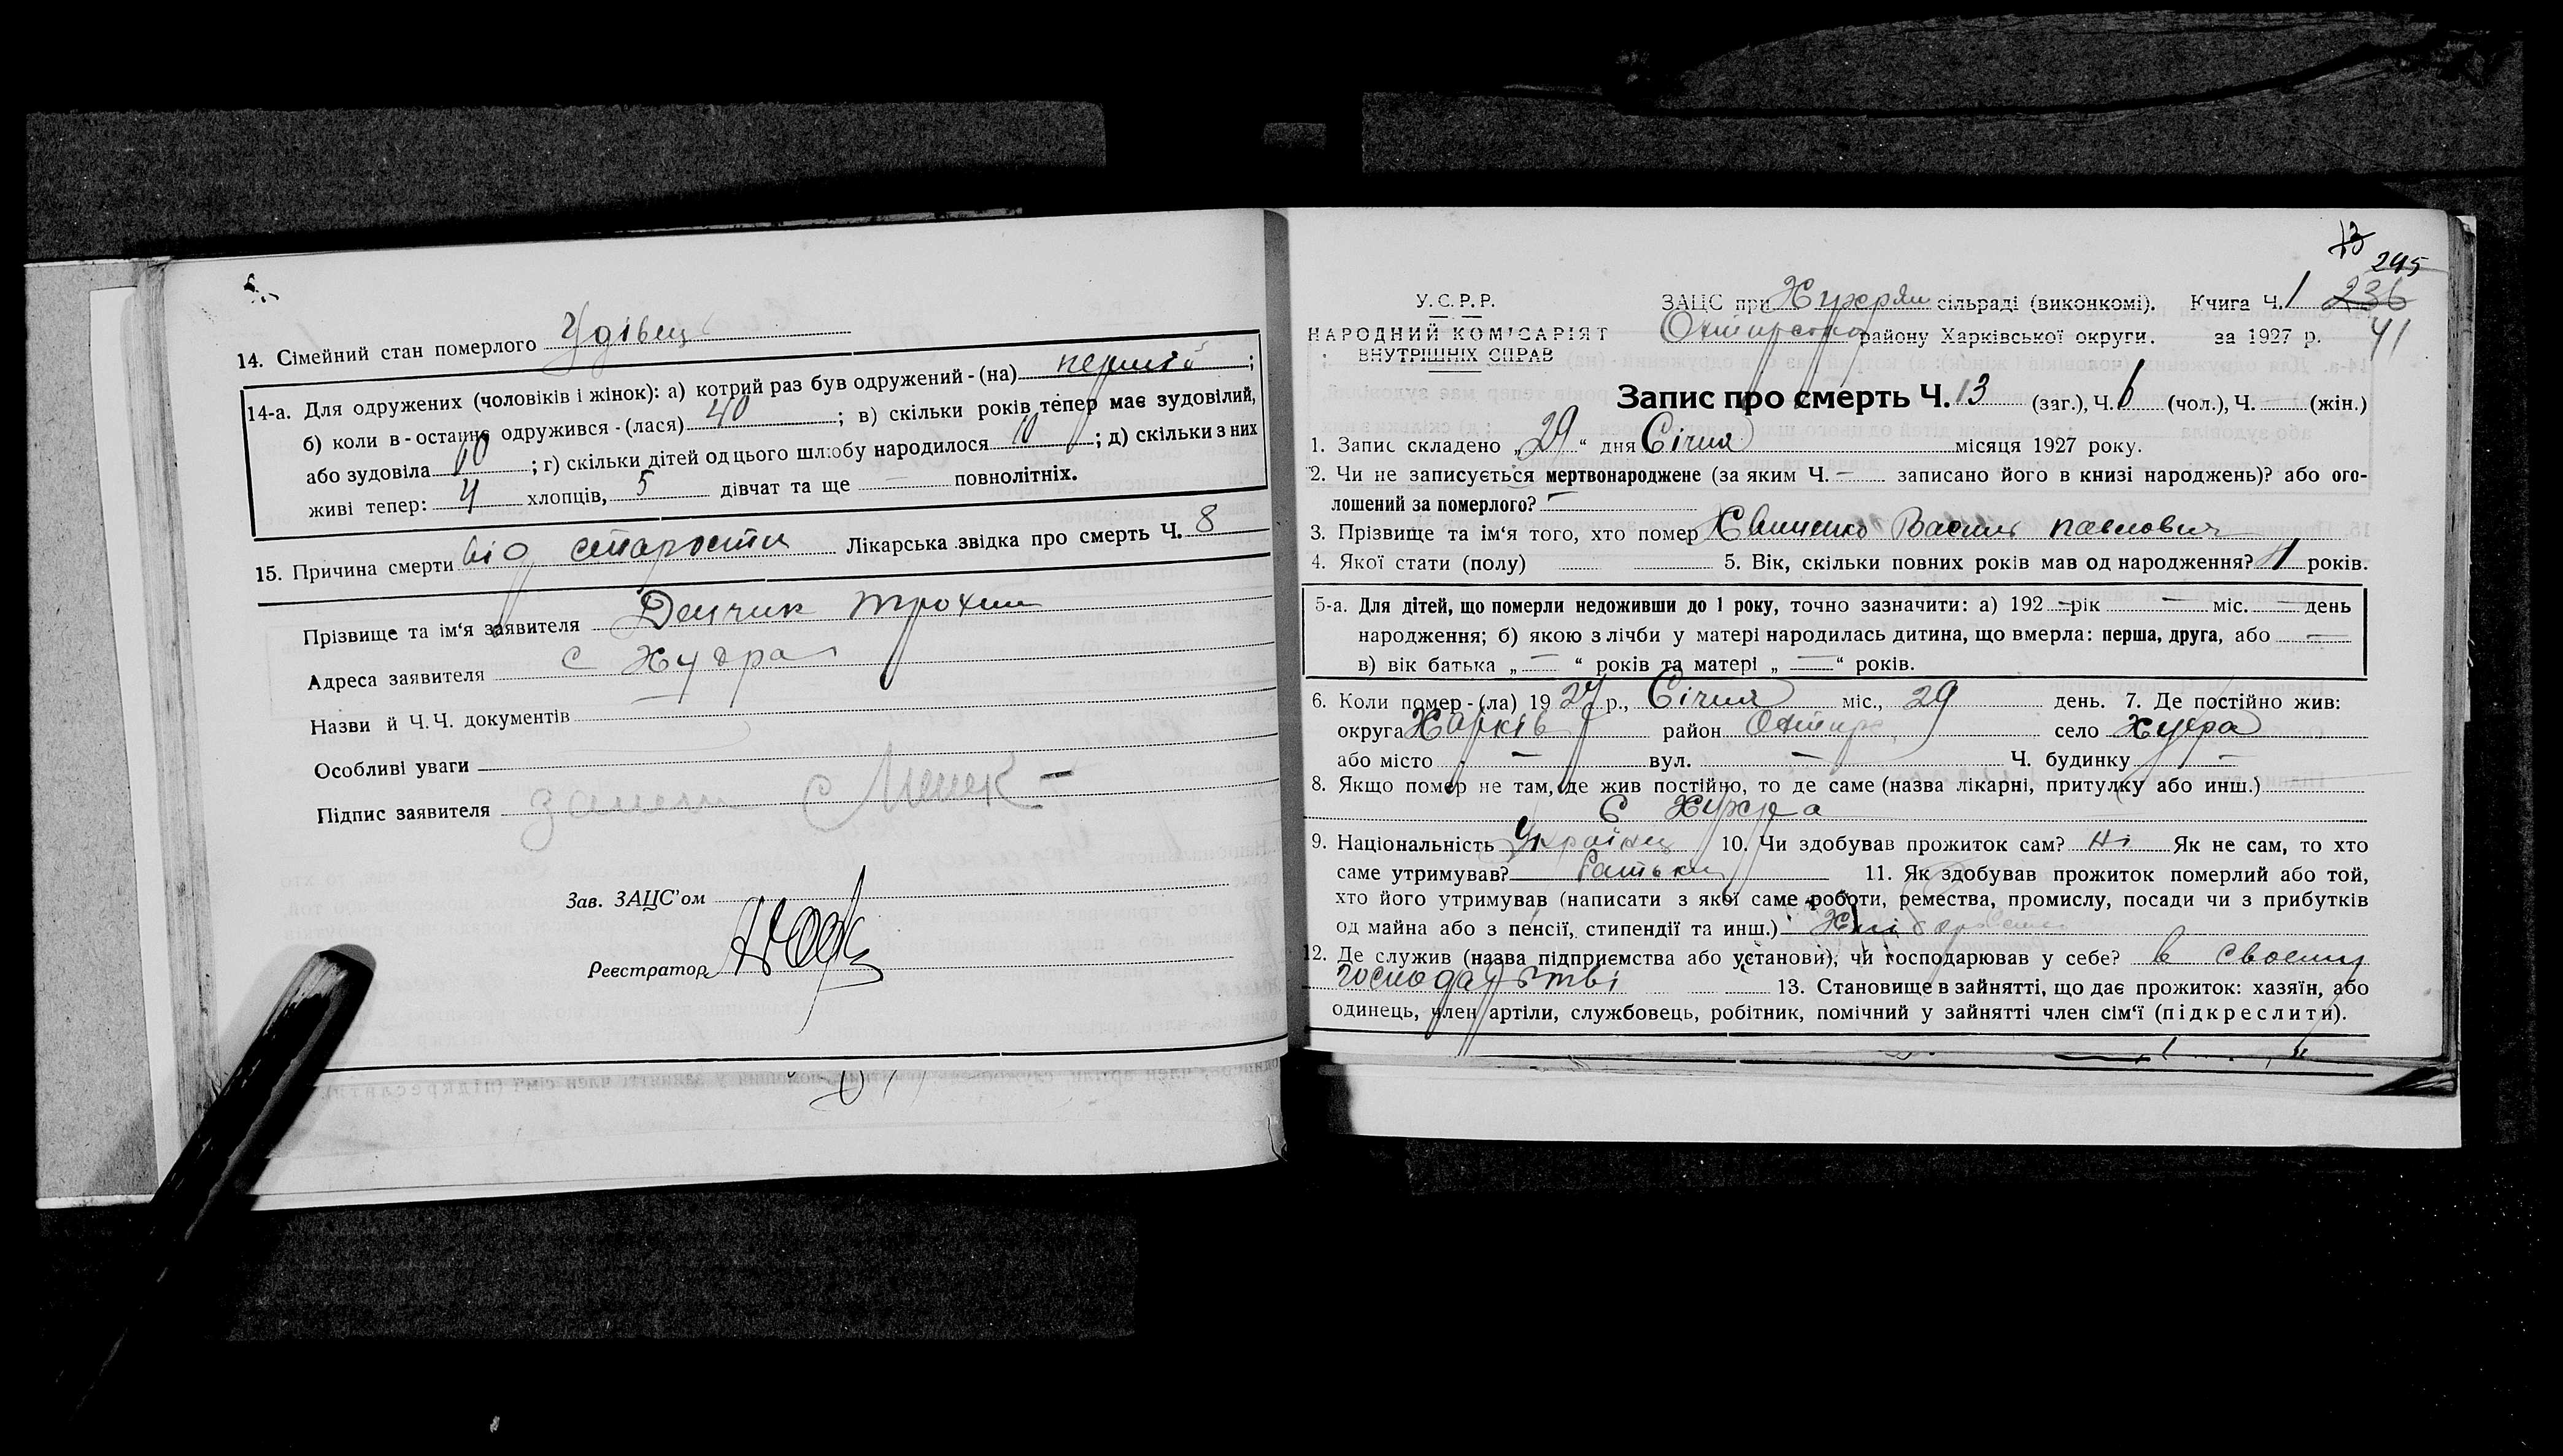 14. Сімейний стан померлого Удівець
14-а. Для одружених (чоловіків і жінок): а) котрий раз був одружений - (на) перший ;
б) коли в-останнє одружився - (лася) 40 ; в) скільки років тепер має зудовілий,
або зудовіла 10 ; г) скільки дітей од цього шлюбу народилося 10 ; д) скільки з них
живі тепер: 4 хлопців, 5 дівчат та ще — повнолітніх.
15. Причина смерти від старости Лікарська звідка про смерть Ч. 8
Прізвище та ім'я заявителя Трохим
Адреса заявителя с Хухра
Назви й Ч.Ч. документів
Особливі уваги
Підпис заявителя
Зав. ЗАЦС'ом
Реєстратор
13
245
У.С.Р.Р.
НАРОДНИЙ КОМІСАРІЯТ
ВНУТРІШНІХ СПРАВ
ЗАЦС при Хухрян сільраді (виконкомі). Книга Ч. 1 236
Охтирского району Харківської округи. за 1927 р. 41
Запис про смерть Ч. 13 (заг.), Ч. 6 (чол.), Ч. (жін.)
1. Запис складено „29“ дня Січня місяця 1927 року.
2. Чи не записується мертвонароджене (за яким Ч. — записано його в книзі народжень)? або ого-
лошений за померлого? —
3. Прізвище та ім'я того, хто помер Василь Павлович
4. Якої стати (полу) 5. Вік, скільки повних років мав од народження? років.
5-а. Для дітей, що померли недоживши до 1 року, точно зазначити: а) 192 — рік — міс. — день
народження; б) якою з лічби у матері народилась дитина, що вмерла: перша, друга, або —
в) вік батька „ — “ років та матері „ — “ років.
6. Коли помер - (ла) 1927 р., Січня міс., 29 день. 7. Де постійно жив:
округа Харків район Охтирк село Хухра
або місто — вул. — Ч. будинку —
8. Якщо помер не там, де жив постійно, то де саме (назва лікарні, притулку або инш.)
С Хухра
9. Національність Українец 10. Чи здобував прожиток сам? Ні Як не сам, то хто
саме утримував? Батьки 11. Як здобував прожиток померлий або той,
хто його утримував (написати з якої саме роботи, ремества, промислу, посади чи з прибутків
од майна або з пенсії, стипендії та инш.) Хліборобство
12. Де служив (назва підприємства або установи), чи господарював у себе? в своєму
господарьтві 13. Становище в зайнятті, що дає прожиток: хазяїн, або
одинець, член артіли, службовець, робітник, помічний у зайнятті член сім'ї (підкреслити).